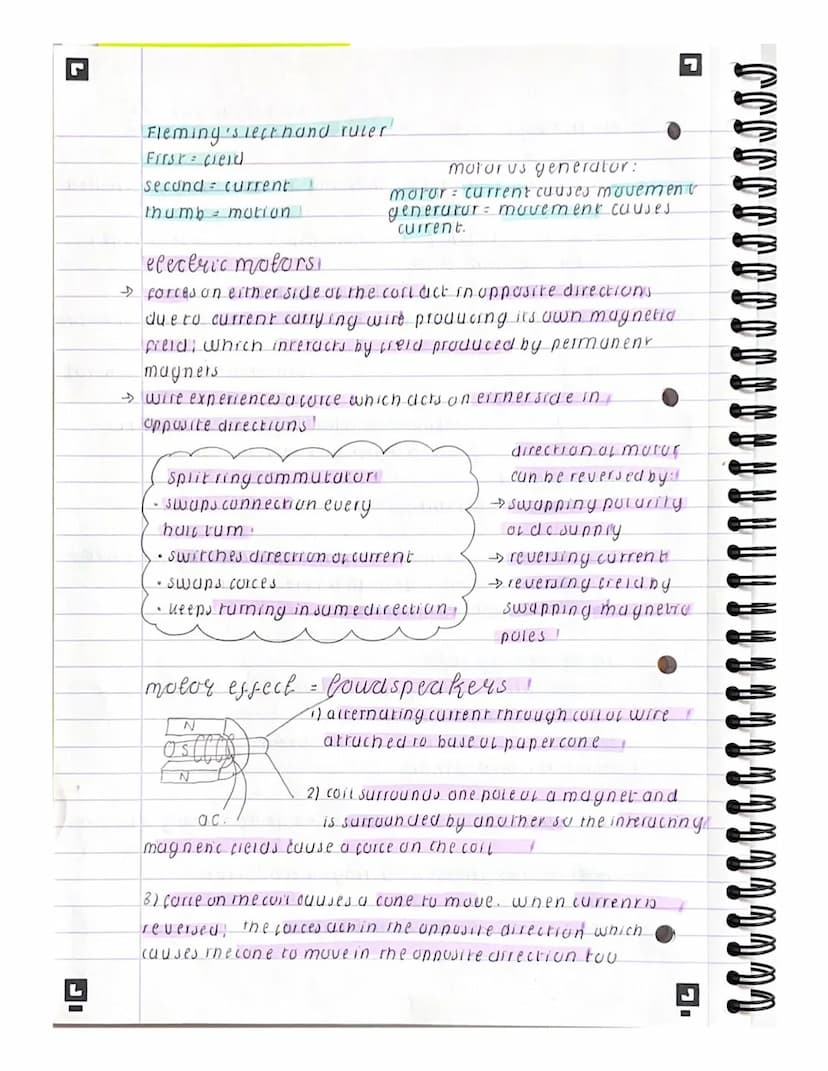 Fleming's left hand ruler
First = field
second = current
thumb = motion
motor vs generator:
motor = current causes movement
generator = movement causes
current.
electric motors
→ forces on either side of the coil act in opposite directions
due to current carrying wire producing its own magnetic
field, which interacts by field produced by permanent
magnets
→ wire experiences a force which acts on either side in
opposite directions
split ring commutator
· swaps connection every
half turn
· switches direction of current
· swaps forces
· keeps turning in same direction
direction of motor
can be reversed by:
→ swapping polarity
of dc supply
→ reversing current
→ reversing field by
swapping magnetic
poles
motor effect = loudspeakers
1) alternating current through coil of wire
attached to base of paper cone
N
S
N
a.c.
2) coil surrounds one pole of a magnet and
is surrounded by another so the interacting
magnetic fields cause a force on the coil
3) force on the coil causes a cone to move. when current is
reversed, the forces act in the opposite direction which
causes the cone to move in the opposite direction too